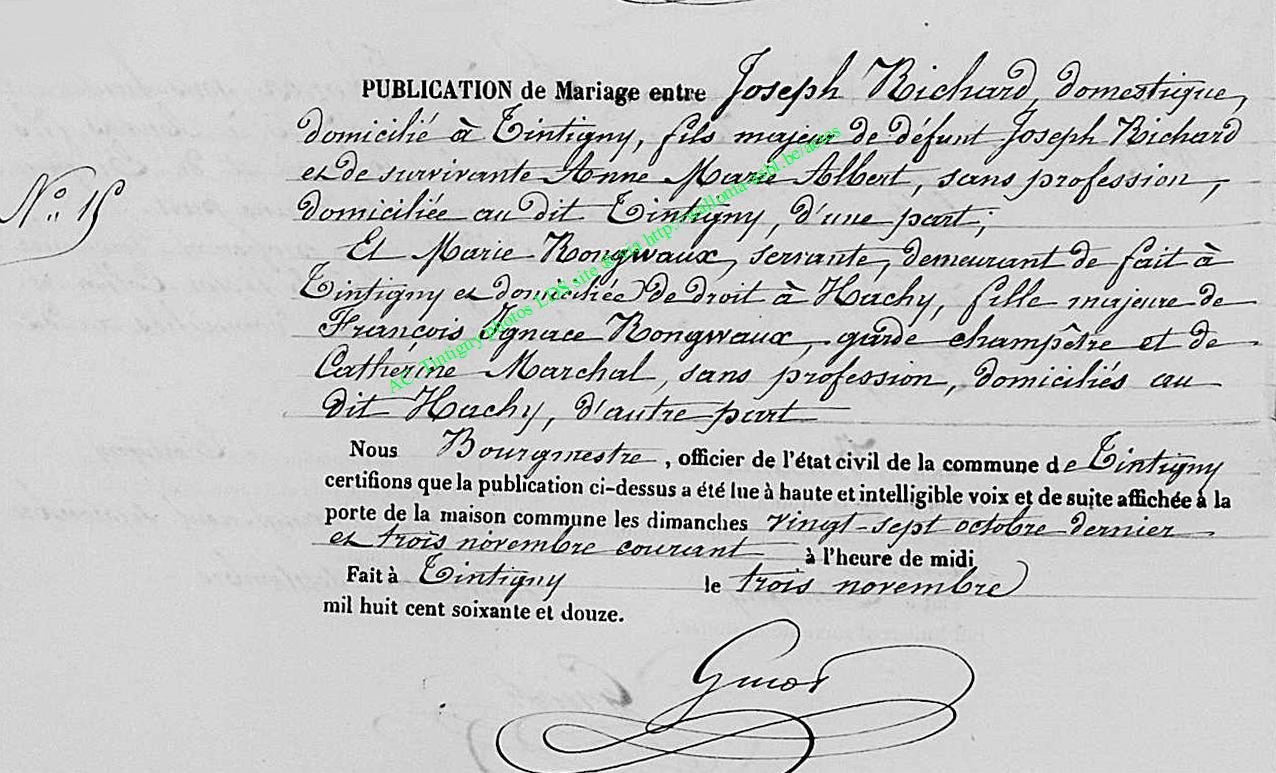 PUBLICATION de Mariage entre Joseph Richard, domestique,
domicilié à Tintigny, fils majeur de défunt Joseph Richard
et de survivante Anne Marie Albert, sans profession,
N°. 15
domiciliée au dit Tintigny, d'une part;
Et Marie Rongwaux, servante, demeurant de fait à
Tintigny et domiciliée de droit à Hachy, fille majeure de
François Ignace Rongwaux, garde champêtre et de
Catherine Marchal, sans profession, domiciliés au
dit Hachy, d'autre part
Nous Bourgmestre, officier de l'état civil de la commune de Tintigny
certifions que la publication ci-dessus a été lue à haute et intelligible voix et de suite affichée à la
porte de la maison commune les dimanches vingt-sept octobre dernier
et trois novembre courant à l'heure de midi
Fait à Tintigny le trois novembre
mil huit cent soixante et douze.